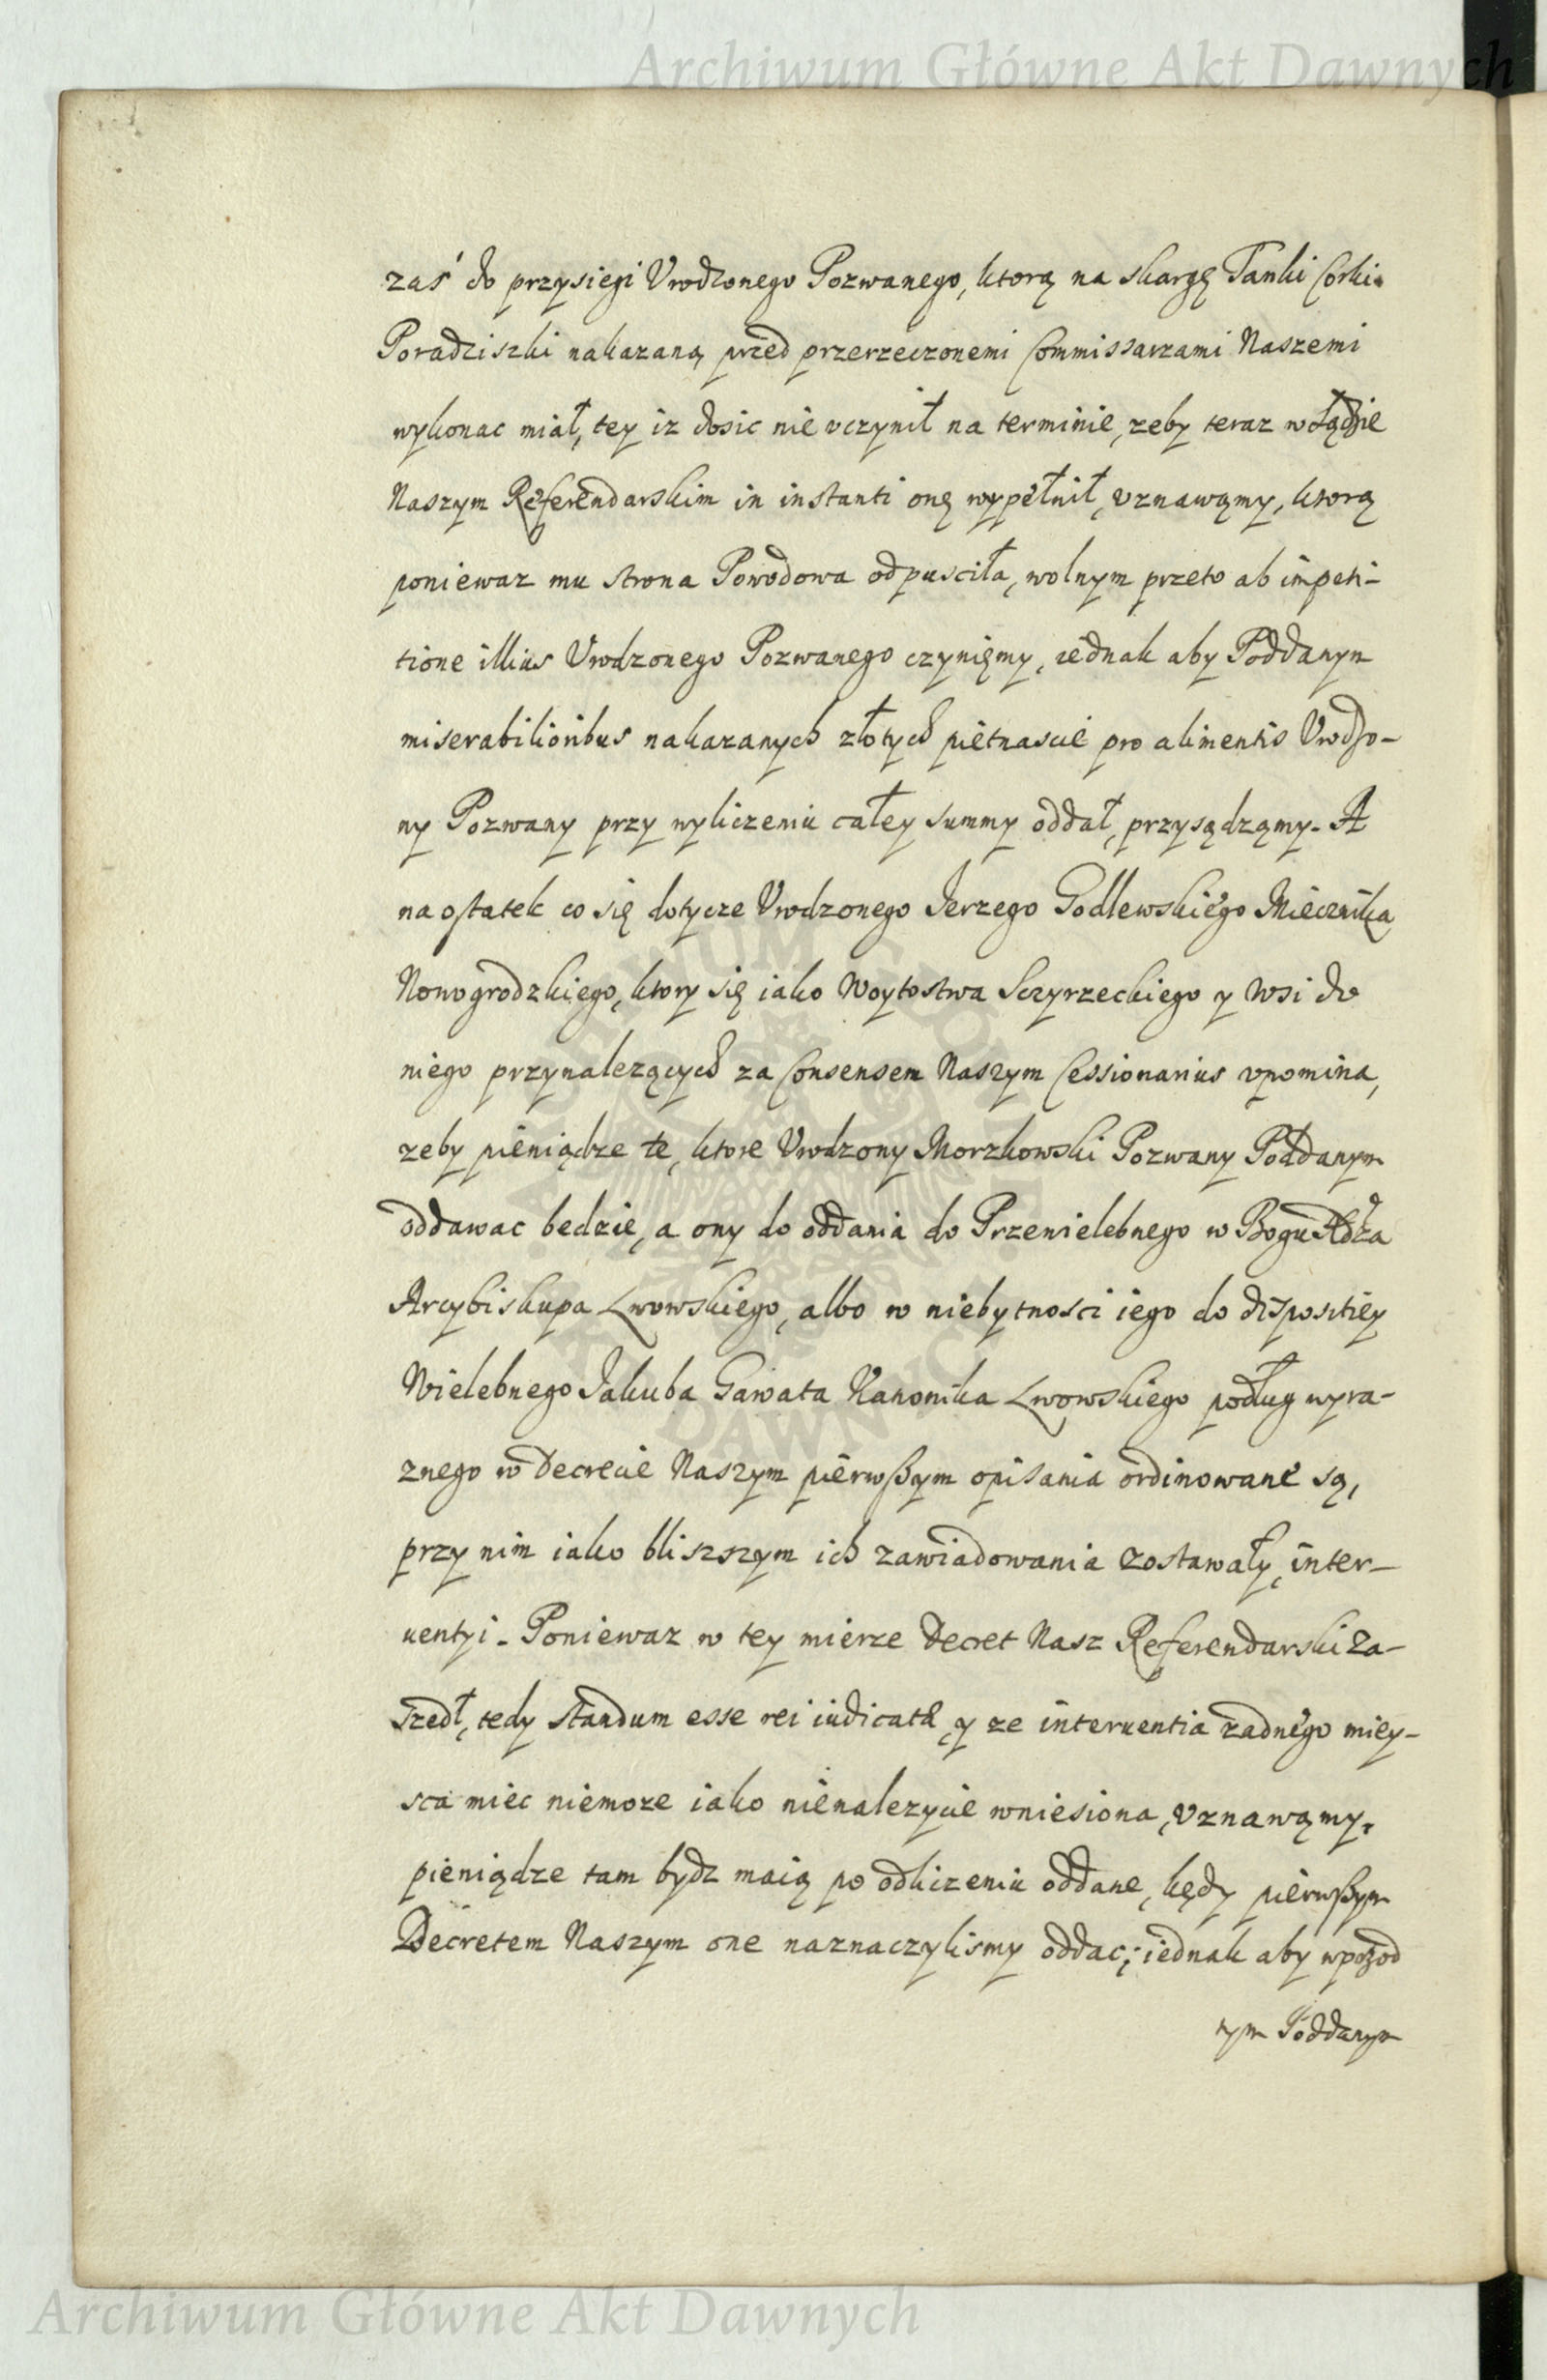 Archiwum Główne Akt Dawnych
zaś do przysiegi Vrodzonego Pozwanego, ktorą na skargę Panki Corki
Poradziszki nakazaną przed przerzeczonemi Commissarzami Naszemi
wykonac miał, tey iz dosic nie vczynił na terminie, zeby teraz w Sądzie
Naszym Referendarskim in instanti onę wypełnił, vznawamy, ktorą
poniewaz mu strona Powodowa odpusciła, wolnym przeto ab impeti-
tione illius Vrodzonego Pozwanego czyniemy, iednak aby Poddanym
miserabilioribus nakazanych złotych piętnascie pro alimentis Vrodzo-
ny Pozwany przy wyliczeniu całey summy oddał, przysądzamy. A
na ostatek co się dotycze Vrodzonego Jerzego Godlewskiego Miecznika
Nowogrodzkiego, ktory się iako Woytostwa Sczyrzeckiego y Wsi do
niego przynalezących za Consensem Naszym Cessionarius vpomina,
zeby pieniądze te, ktore Vrodzony Morzkowski Pozwany Poddanym
oddawac bedzie, a ony do oddania do Przewielebnego w Bogu Xdza
Arcybiskupa Lwowskiego, albo w niebytnosci iego do dispositiey
Wielebnego Jakuba Gawata Kanonika Lwowskiego podług wyra-
znego w Decrecie Naszym pierwszym opisania ordinowane są,
przy nim iako bliszszym ich zawiadowania zostawały, inter-
uentyi. Poniewaz w tey mierze Decret Nasz Referendarski za-
szedł, tedy standum esse rei iudicatæ, y ze interuentia zadnego miey-
sca miec niemoze iako nienalezycie wniesiona, vznawamy,
pieniądze tam bydz maią po odliczeniu oddane, kędy pierwszym
Decretem Naszym one naznaczylismy oddac; iednak aby wprzod
tym Poddanym
Archiwum Główne Akt Dawnych